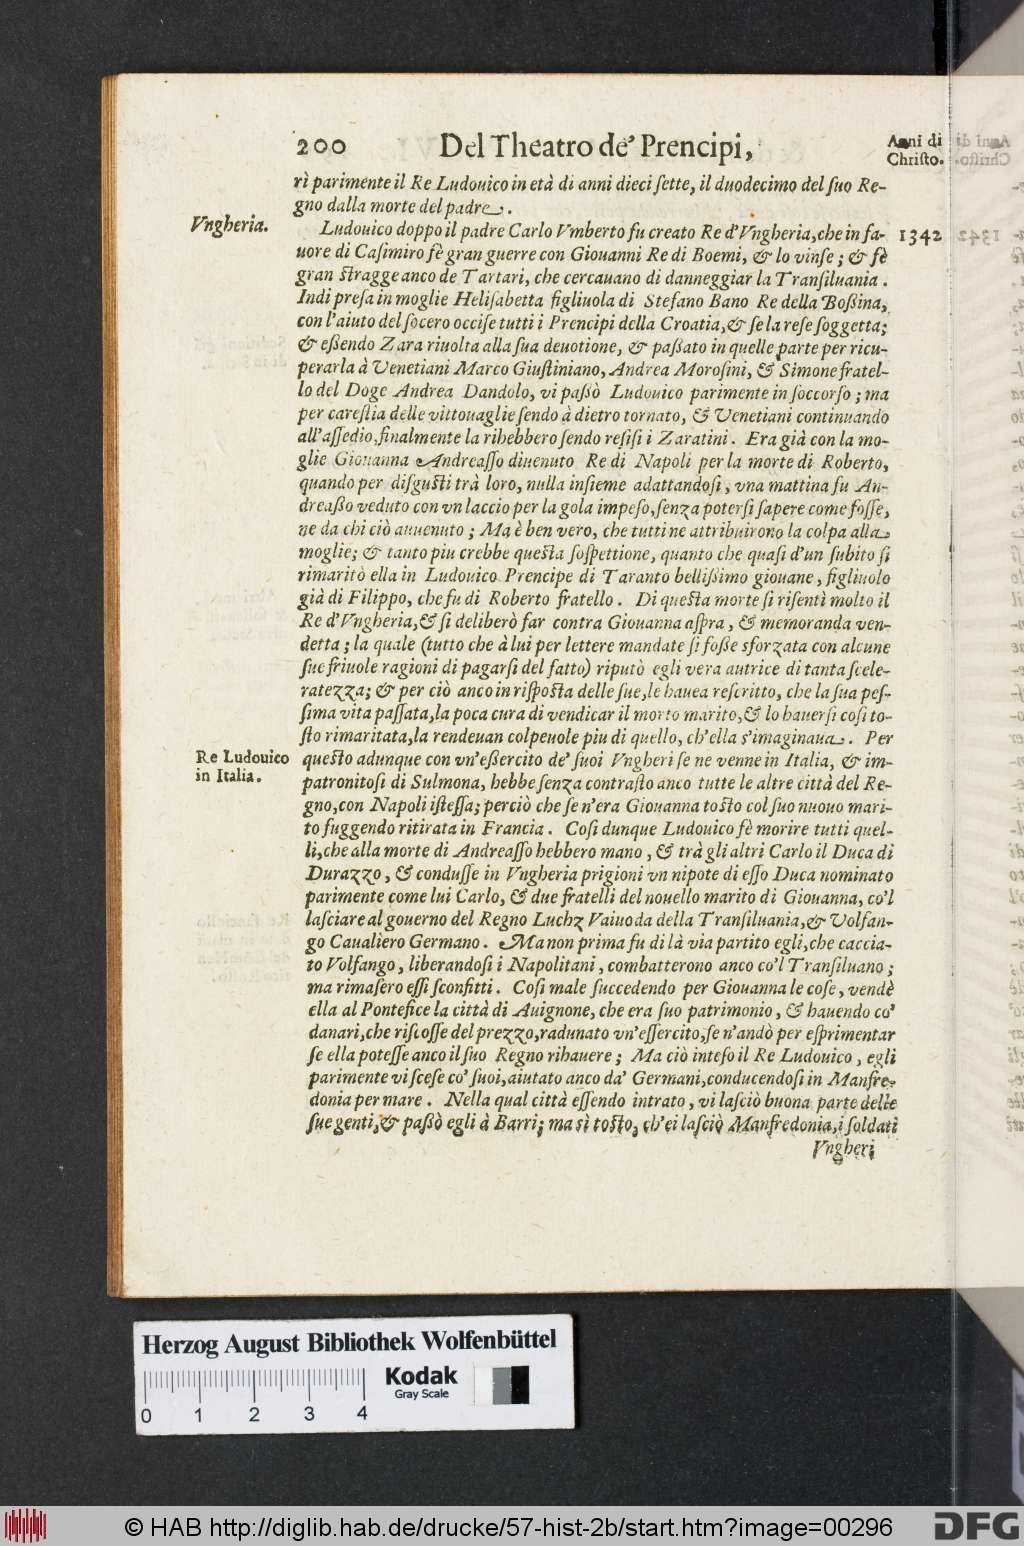 200 Del Theatro de' Prencipi, Anni di
Christo.
rì parimente il Re Ludouico in età di anni dieci ſette, il duodecimo del ſuo Re-
gno dalla morte del padre.
Vngheria.
Ludouico doppo il padre Carlo Vmberto fu creato Re d'Vngheria, che in fa-
1342
uore di Caſimiro fè gran guerre con Giouanni Re di Boemi, & lo vinſe; & fè
gran ſtragge anco de Tartari, che cercauano di danneggiar la Tranſiluania.
Indi preſa in moglie Heliſabetta figliuola di Stefano Bano Re della Boßina,
con l'aiuto del ſocero occiſe tutti i Prencipi della Croatia, & ſe la reſe ſoggetta;
& eßendo Zara riuolta alla ſua deuotione, & paßato in quelle parte per ricu-
perarla à Venetiani Marco Giuſtiniano, Andrea Moroſini, & Simone fratel-
lo del Doge Andrea Dandolo, vi paßò Ludouico parimente in ſoccorſo; ma
per careſtia delle vittouaglie ſendo à dietro tornato, & Venetiani continuando
all'aſſedio, finalmente la rihebbero ſendo reſiſi i Zaratini. Era già con la mo-
glie Giouanna Andreaſſo diuenuto Re di Napoli per la morte di Roberto,
quando per diſguſti trà loro, nulla inſieme adattandoſi, vna mattina fu An-
dreaßo veduto con vn laccio per la gola impeſo, ſenza poterſi ſapere come foſſe,
ne da chi ciò auuenuto; Ma è ben vero, che tutti ne attribuirono la colpa alla
moglie; & tanto piu crebbe queſta ſoſpettione, quanto che quaſi d'un ſubito ſi
rimaritò ella in Ludouico Prencipe di Taranto bellißimo giouane, figliuolo
già di Filippo, che fu di Roberto fratello. Di queſta morte ſi riſentì molto il
Re d'Vngheria, & ſi deliberò far contra Giouanna aſpra, & memoranda ven-
detta; la quale (tutto che à lui per lettere mandate ſi foße sforzata con alcune
ſue friuole ragioni di pagarſi del fatto) riputò egli vera autrice di tanta ſcele-
ratezza; & per ciò anco in riſpoſta delle ſue, le hauea reſcritto, che la ſua peſ-
ſima vita paſſata, la poca cura di vendicar il morto marito, & lo hauerſi coſi to-
ſto rimaritata, la rendeuan colpeuole piu di quello, ch'ella s'imaginaua. Per
Re Ludouico
in Italia.
queſto adunque con vn'eßercito de' ſuoi Vngheri ſe ne venne in Italia, & im-
patronitoſi di Sulmona, hebbe ſenza contraſto anco tutte le altre città del Re-
gno, con Napoli iſteſſa; perciò che ſe n'era Giouanna toſto col ſuo nuouo mari-
to fuggendo ritirata in Francia. Coſi dunque Ludouico fè morire tutti quel-
li, che alla morte di Andreaſſo hebbero mano, & trà gli altri Carlo il Duca di
Durazzo, & conduſſe in Vngheria prigioni vn nipote di eſſo Duca nominato
parimente come lui Carlo, & due fratelli del nouello marito di Giouanna, co'l
laſciare al gouerno del Regno Luchz Vaiuoda della Tranſiluania, & Volfan-
go Caualiero Germano. Ma non prima fu di là via partito egli, che caccia-
to Volfango, liberandoſi i Napolitani, combatterono anco co'l Tranſiluano;
ma rimaſero eſſi ſconfitti. Coſi male ſuccedendo per Giouanna le coſe, vendè
ella al Pontefice la città di Auignone, che era ſuo patrimonio, & hauendo co'
danari, che riſcoſſe del prezzo, radunato vn'eſſercito, ſe n'andò per eſprimentar
ſe ella poteſſe anco il ſuo Regno rihauere; Ma ciò inteſo il Re Ludouico, egli
parimente vi ſceſe co' ſuoi, aiutato anco da' Germani, conducendoſi in Manfre-
donia per mare. Nella qual città eſſendo intrato, vi laſciò buona parte delle
ſue genti, & paßò egli à Barri; ma sì toſto, ch'ei laſciò Manfredonia, i ſoldati
Vngheri
Herzog August Bibliothek Wolfenbüttel
Kodak
Gray Scale
0 1 2 3 4
© HAB http://diglib.hab.de/drucke/57-hist-2b/start.htm?image=00296
DFG